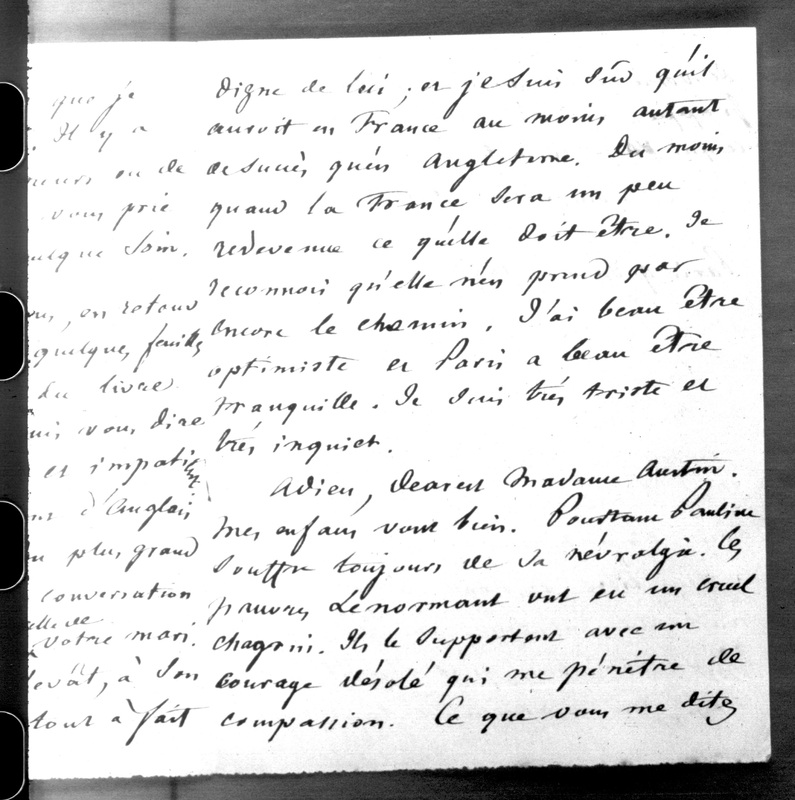 que je
Il y a
ou de
vous prie
quelque soin.
en retour
quelques feuilles
du livre
vous dire
et impati
d'Anglais
plus grand
conversation
celle de
votre mari.
à son
tout à fait
digne de lui ; et je suis sûr qu'il
auroit en France au moins autant
de succès qu'en Angleterre. Du moins
quand la France sera un peu
redevenue ce qu'elle doit être. Je
reconnois qu'elle n'en prend pas
encore le chemin. J'ai beau être
optimiste et Paris a beau être
tranquille. Je suis très triste et
très inquiet.
Adieu, dearest Madame Austin.
Mes enfans vont bien. Pourtant Pauline
souffre toujours de sa névralgie. Les
pauvres Lenormant ont eu un cruel
chagrin. Ils le supportent avec un
courage désolé qui me pénètre de
compassion. Ce que vous me dites